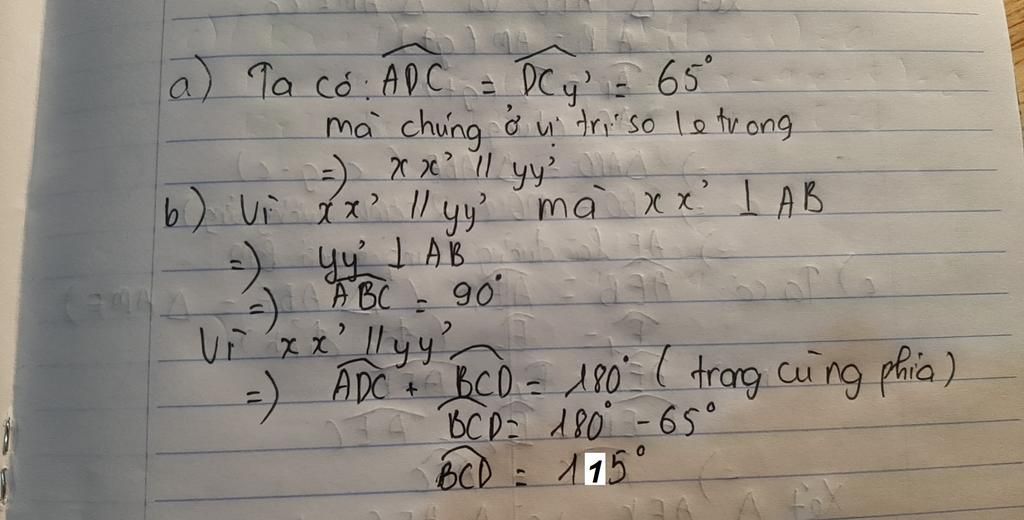 a) Ta có: ADC = DCy' = 65°
mà chúng ở vị trí so le trong
=) xx' // yy'
b) Vì xx' // yy' mà xx' ⊥ AB
=) yy' ⊥ AB
=) ABC = 90°
Vì xx' // yy'
=) ADC + BCD = 180° ( trong cùng phía)
BCD = 180° - 65°
BCD = 115°